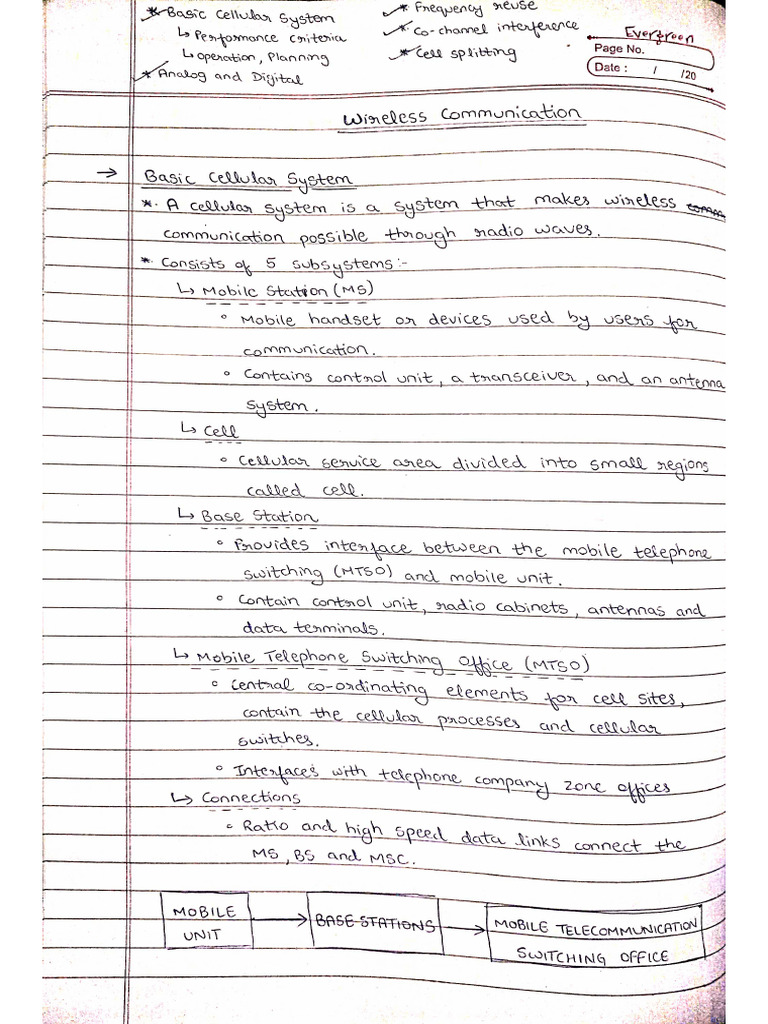 * Basic Cellular System
↳ Performance criteria
↳ operation, Planning
* Analog and Digital
* Frequency reuse
* Co-channel interference
* Cell splitting
Evergreen
Page No.
Date : / /20
Wireless Communication
→ Basic Cellular System
* A cellular system is a system that makes wireless
communication possible through radio waves.
* Consists of 5 subsystems:-
↳ Mobile Station (MS)
◦ Mobile handset or devices used by users for
communication.
◦ Contains control unit, a transceiver, and an antenna
system.
↳ Cell
◦ Cellular service area divided into small regions
called cell.
↳ Base Station
◦ Provides interface between the mobile telephone
switching (MTSO) and mobile unit.
◦ Contain control unit, radio cabinets, antennas and
data terminals.
↳ Mobile Telephone Switching Office (MTSO)
◦ Central co-ordinating elements for cell sites,
contain the cellular processes and cellular
switches.
◦ Interfaces with telephone company zone offices
↳ Connections
◦ Ratio and high speed data links connect the
MS, BS and MSC.
MOBILE
UNIT
BASE STATIONS
MOBILE TELECOMMUNICATION
SWITCHING OFFICE